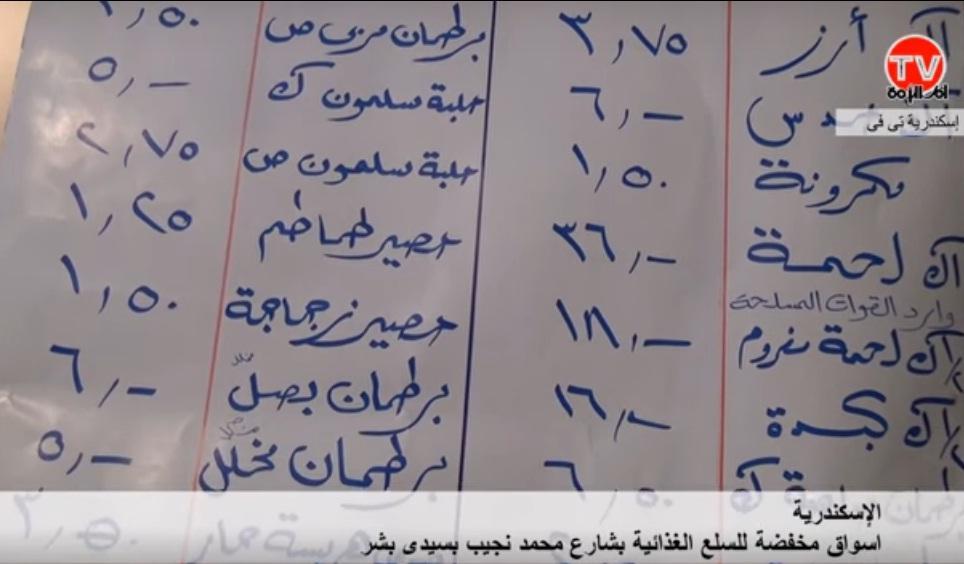 ١ك أرز ٣,٧٥
٦,-
مكرونة ١,٥٠
١ك لحمة ٣٦,-
وارد القوات المسلحة
١/٢ك لحمة مفروم ١٨,-
١/٢ك كبدة ١٦,-
٦,٥٠
برطمان مربى ص ١,٥٠
علبة سلمون ك ٥,-
علبة سلمون ص ٢,٧٥
عصير طماطم ١,٢٥
عصير زجاجة ١,٥٠
برطمان بصل مخلل ٦,-
برطمان مخلل ٥,-
هريسة حمار
TV
إسكندرية تى فى
الإسكندرية
اسواق مخفضة للسلع الغذائية بشارع محمد نجيب بسيدى بشر